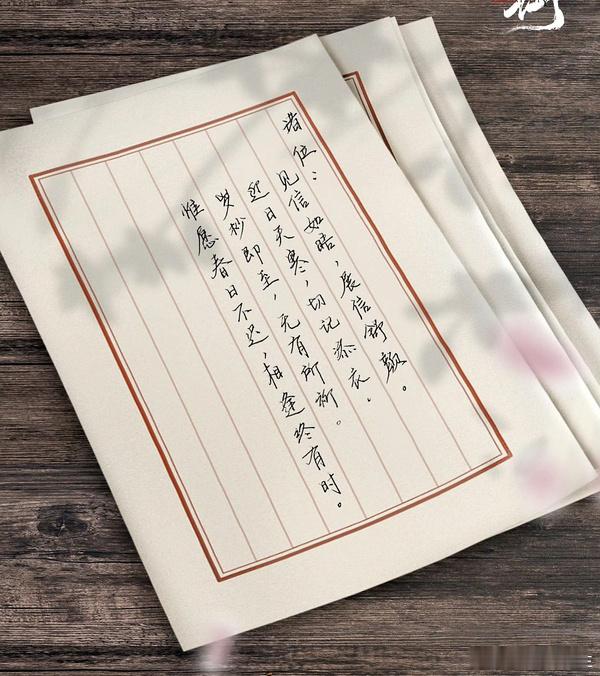 诸位：
见信如晤，展信舒颜。
近日天寒，切记添衣。
岁杪即至，无有所。
惟愿春日不迟，相逢终有时。